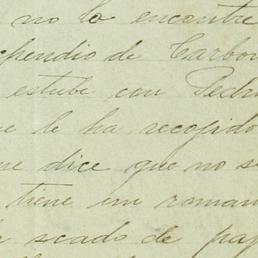 no lo encontre
pendio de Carbo
estube con Pedr
e le ha recogido
me dice que no s
tiene un roman
scado de pap